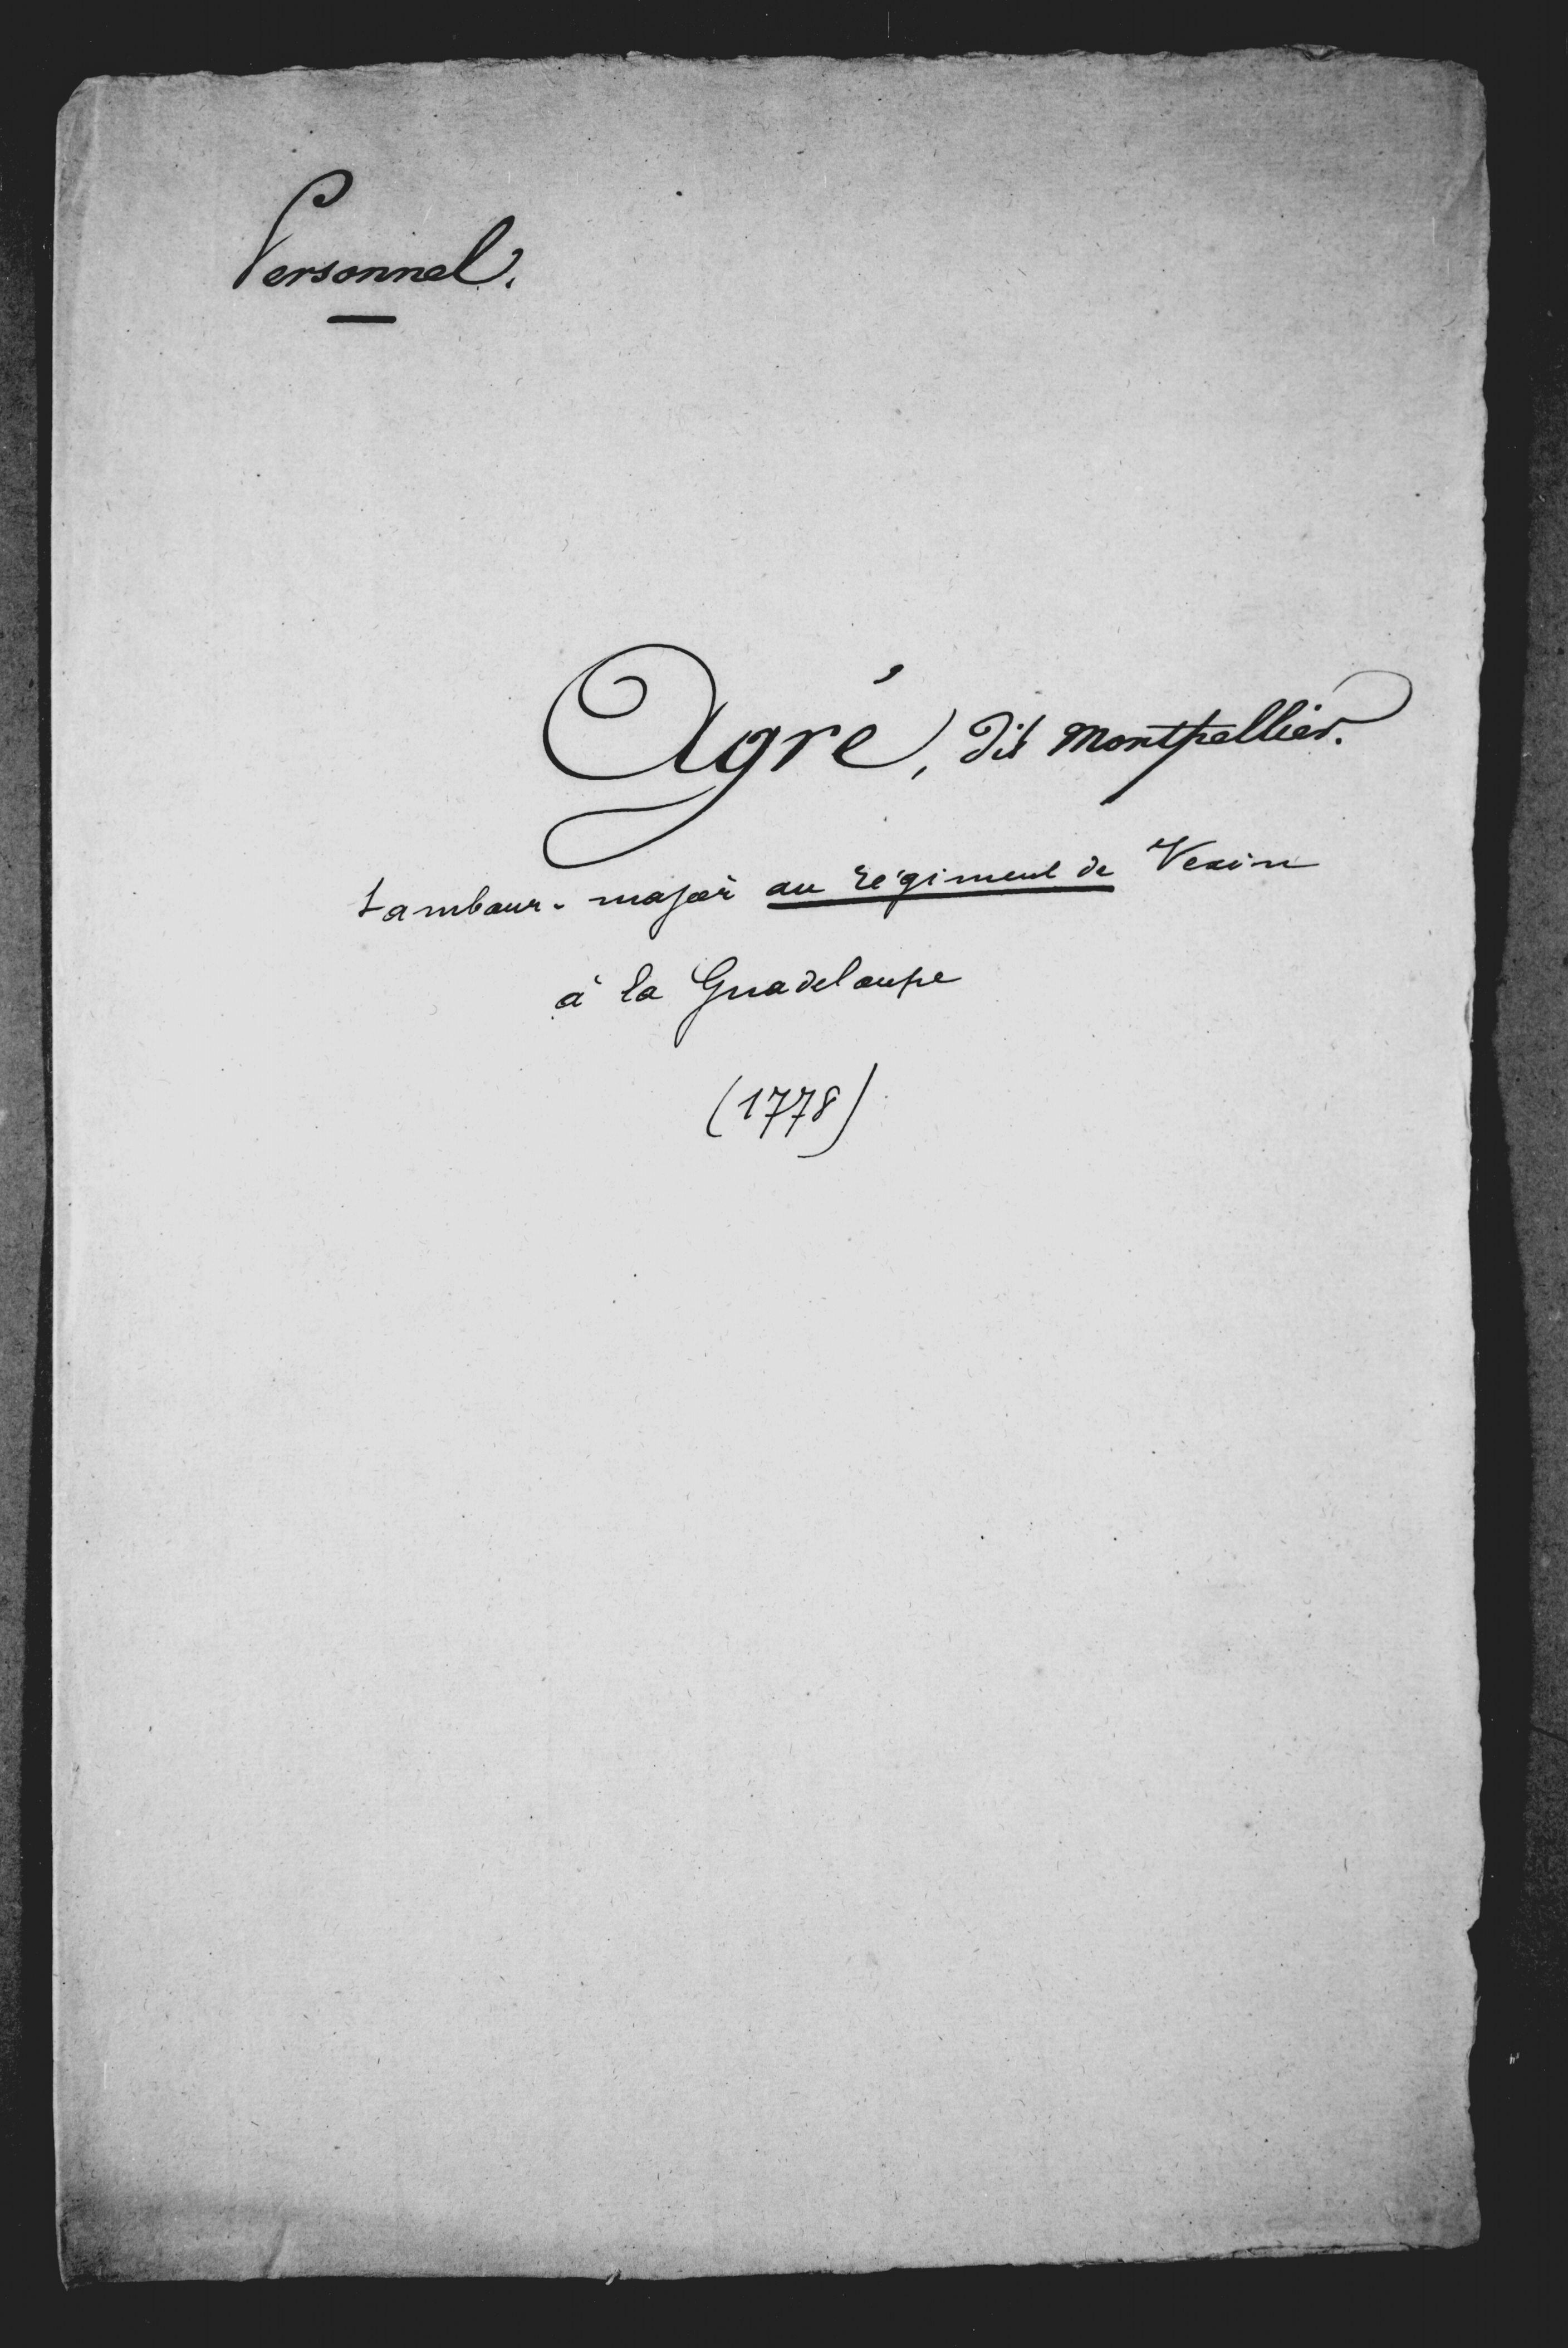 Personnel.
Agré, dit Montpellier.
tambour-major au régiment de Vexin
à la Guadeloupe
(1778)